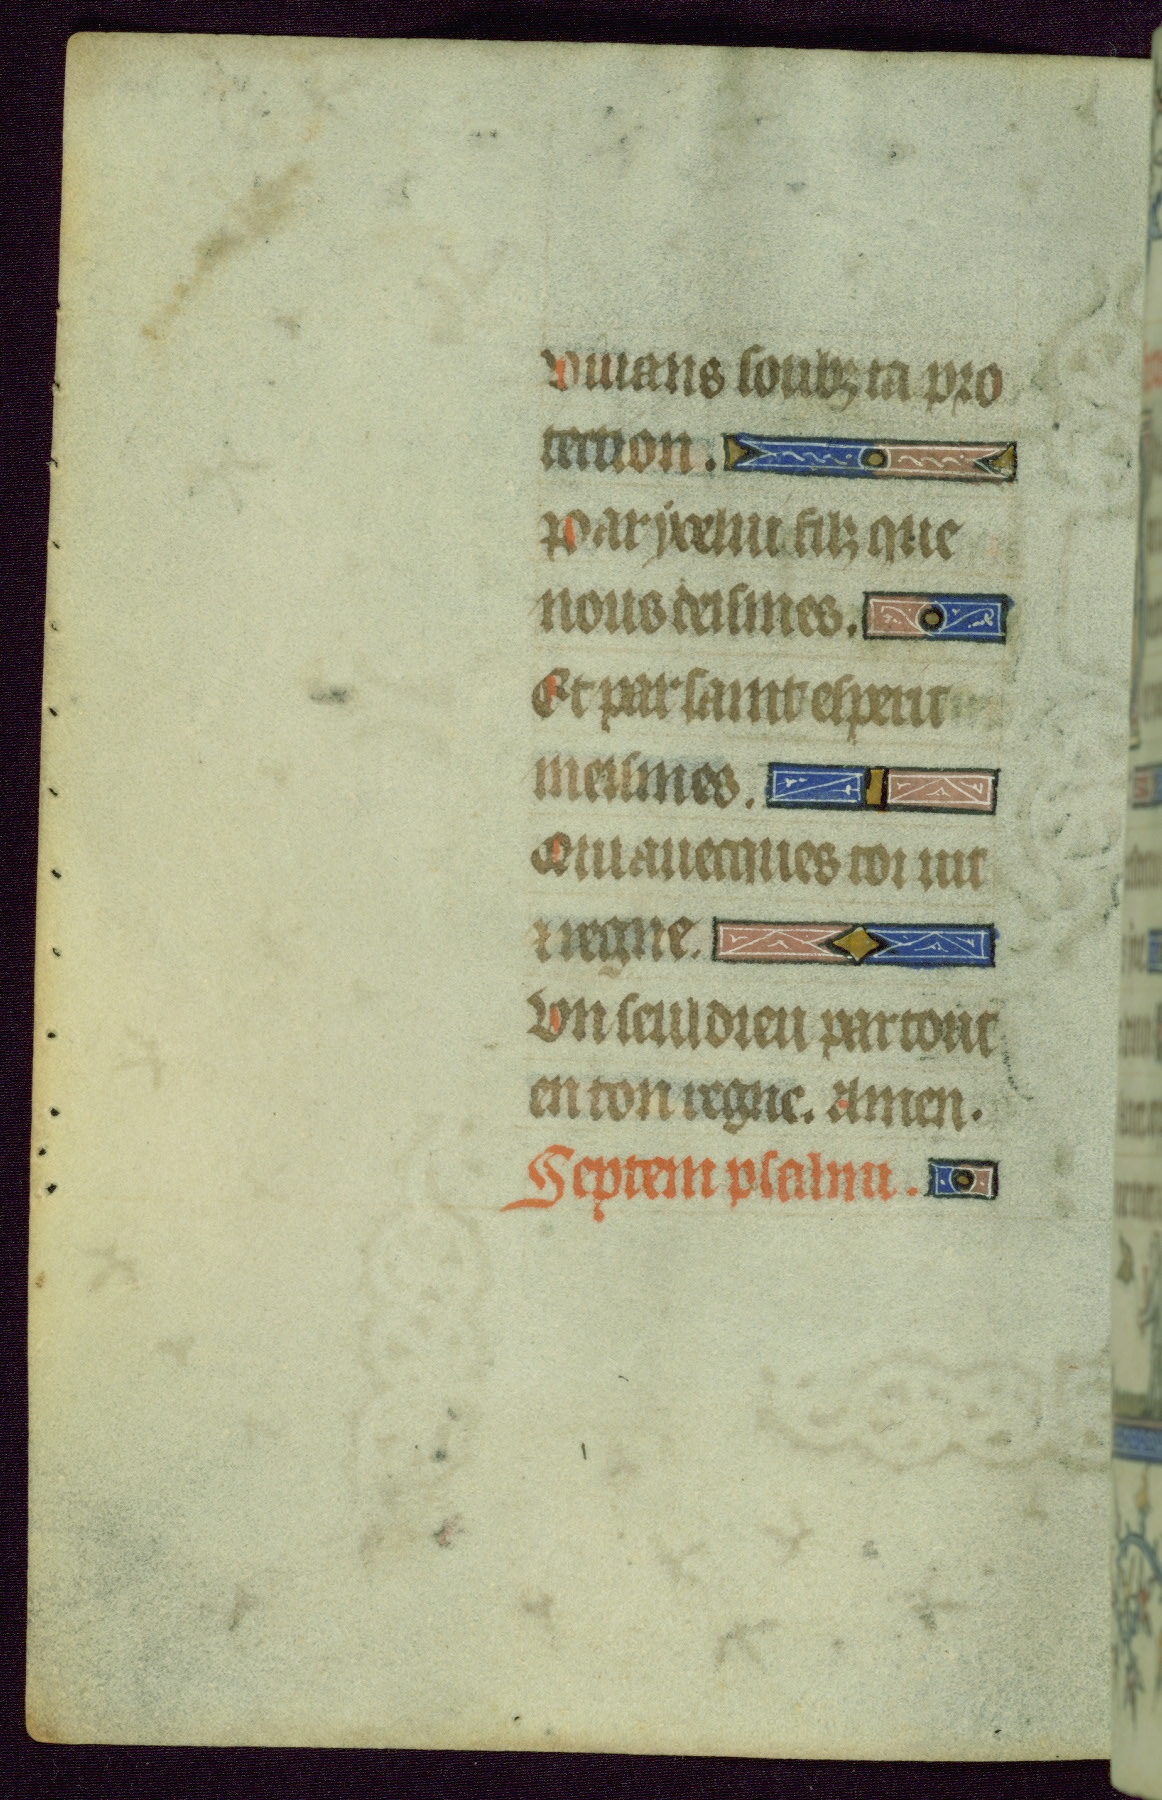 Viuans soubz ta pro
tection.
Par ycelui filz que
nous deismes.
Et par saint esperit
meismes.
Qui auecques toi uit
i regne.
Vn seul dieu par tout
en ton regne. Amen.
Septem psalmi.